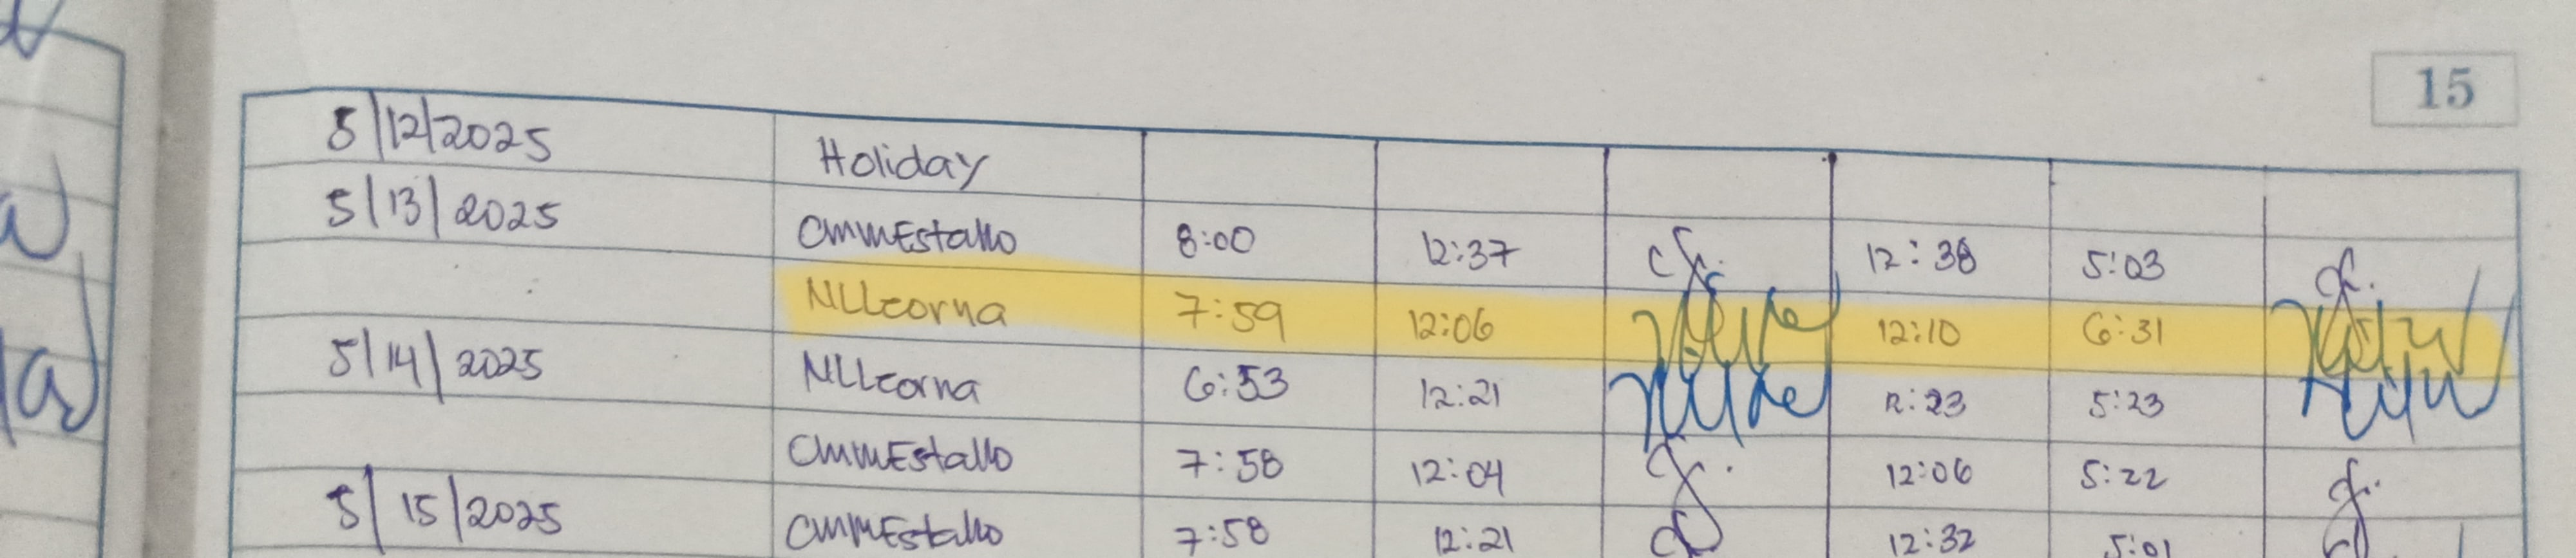 15
5/12/2025 Holiday
5/13/2025 CMMEstallo 8:00 12:37 12:38 5:03
NLLcorna 7:59 12:06 12:10 6:31
5/14/2025 NLLcorna 6:53 12:21 12:23 5:23
CMMEstallo 7:58 12:04 12:06 5:22
5/15/2025 CMMEstallo 7:58 12:21 12:32 5:01